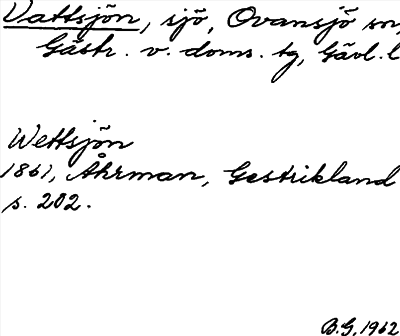 Vattsjön, sjö, Ovansjö sn,
Gästr. v. doms. tg, Gävl. l
Wettsjön
1861, Åhrman, Gestrikland
s. 202.
B.G. 1962